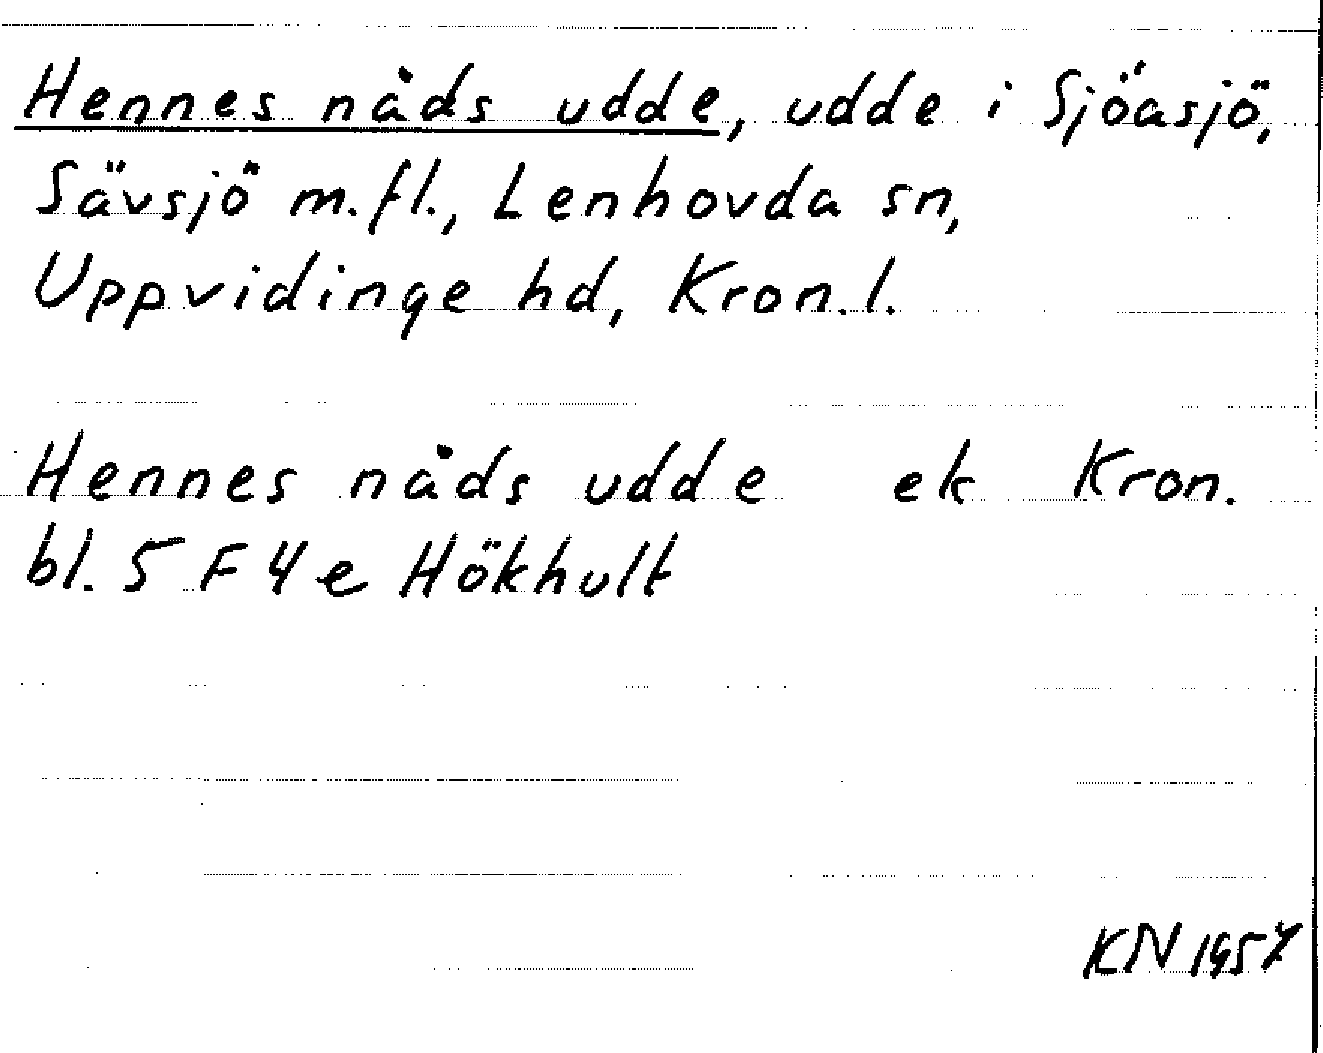 Hennes nåds udde, udde i Sjöasjö,
Sävsjö m.fl., Lenhovda sn,
Uppvidinge hd, Kron.l.
Hennes nåds udde ek Kron.
bl. 5 F 4 e Hökhult
KN 1957